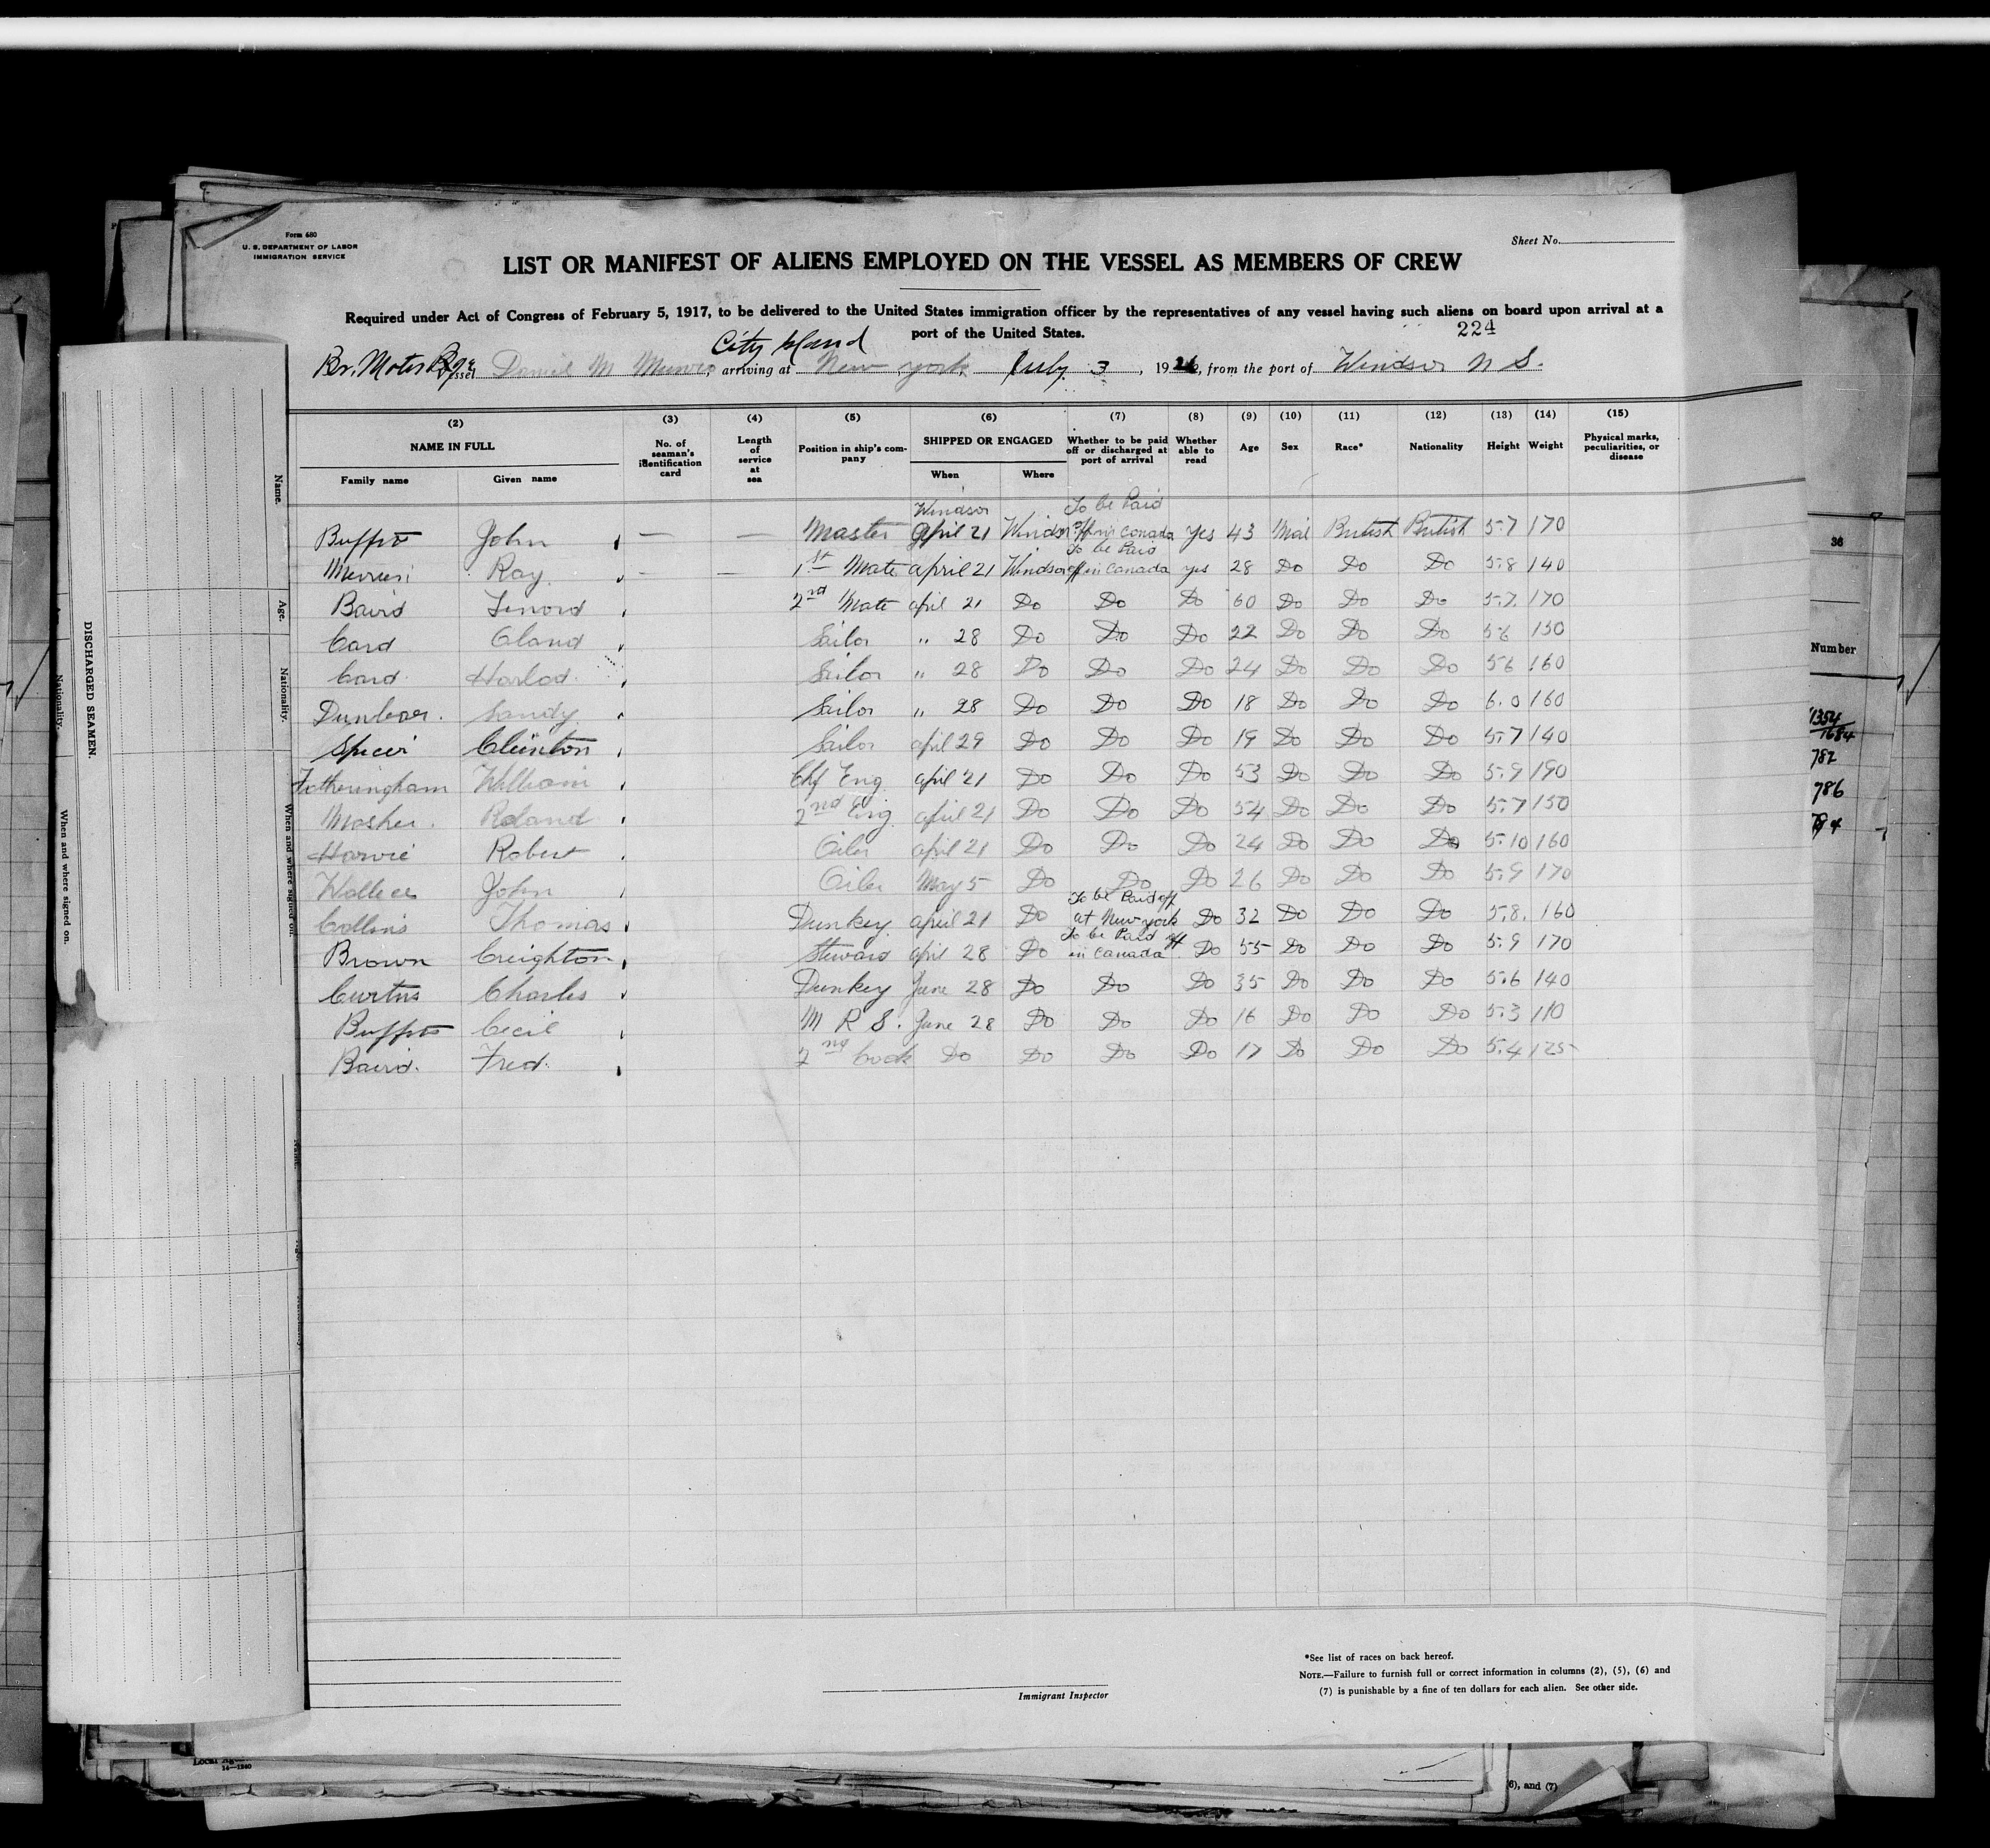 Form 680
U. S. DEPARTMENT OF LABOR
IMMIGRATION SERVICE
Sheet No.
LIST OR MANIFEST OF ALIENS EMPLOYED ON THE VESSEL AS MEMBERS OF CREW
Required under Act of Congress of February 5, 1917, to be delivered to the United States immigration officer by the representatives of any vessel having such aliens on board upon arrival at a
port of the United States.
224
City Island
Br. Motor Vessel Daniel M Munro, arriving at New york July 3, 1926, from the port of Windsor N S.
(2) (3) (4) (5) (6) (7) (8) (9) (10) (11) (12) (13) (14) (15)
NAME IN FULL No. of seaman's identification card Length of service at sea Position in ship's company SHIPPED OR ENGAGED Whether to be paid off or discharged at port of arrival Whether able to read Age Sex Race* Nationality Height Weight Physical marks, peculiarities, or disease
Family name Given name When Where
Windsor To be Paid
John — — Master April 21 Windsor off in Canada Yes 43 Mal British British 5.7 170
To be Paid
Ray — 1st Mate april 21 Windsor off in Canada yes 28 Do Do Do 5.8 140
Baird Lenord 2nd Mate april 21 Do Do Do 60 Do Do Do 5.7. 170
Card Oland Sailor " 28 Do Do Do 22 Do Do Do 5.6 150
Card Harlod Sailor " 28 Do Do Do 24 Do Do Do 5.6 160
Dunbar. Sandy Sailor " 28 Do Do Do 18 Do Do Do 6.0 160
Spicer Clinton Sailor april 29 Do Do Do 19 Do Do Do 5.7 140
Fotheringham William Chf Eng april 21 Do Do Do 53 Do Do Do 5.9 190
Mosher Roland 2nd Eng april 21 Do Do Do 54 Do Do Do 5.7 150
Harvie Robert Oiler april 21 Do Do Do 24 Do Do Do 5.10 160
Wallace John Oiler May 5 Do Do Do 26 Do Do Do 5.9 170
To be Paid off
Collins Thomas Dunkey april 21 Do at New york Do 32 Do Do Do 5.8. 160
To be Paid off
Brown Creighton Steward april 28 Do in Canada Do 55 Do Do Do 5.9 170
Curtus Charles Dunkey June 28 Do Do Do 35 Do Do Do 5.6 140
Cecil M R S. June 28 Do Do Do 16 Do Do Do 5.3 110
Baird. Fred. 2nd Cook Do Do Do Do 17 Do Do Do 5.4 125
*See list of races on back hereof.
NOTE.—Failure to furnish full or correct information in columns (2), (5), (6) and
(7) is punishable by a fine of ten dollars for each alien. See other side.
Immigrant Inspector
DISCHARGED SEAMEN.
Name.
Age.
Nationality.
When and where signed on.
Nationality.
When and where signed on.
36
Number
1354
1684
782
786
14—1240
6), and (7)